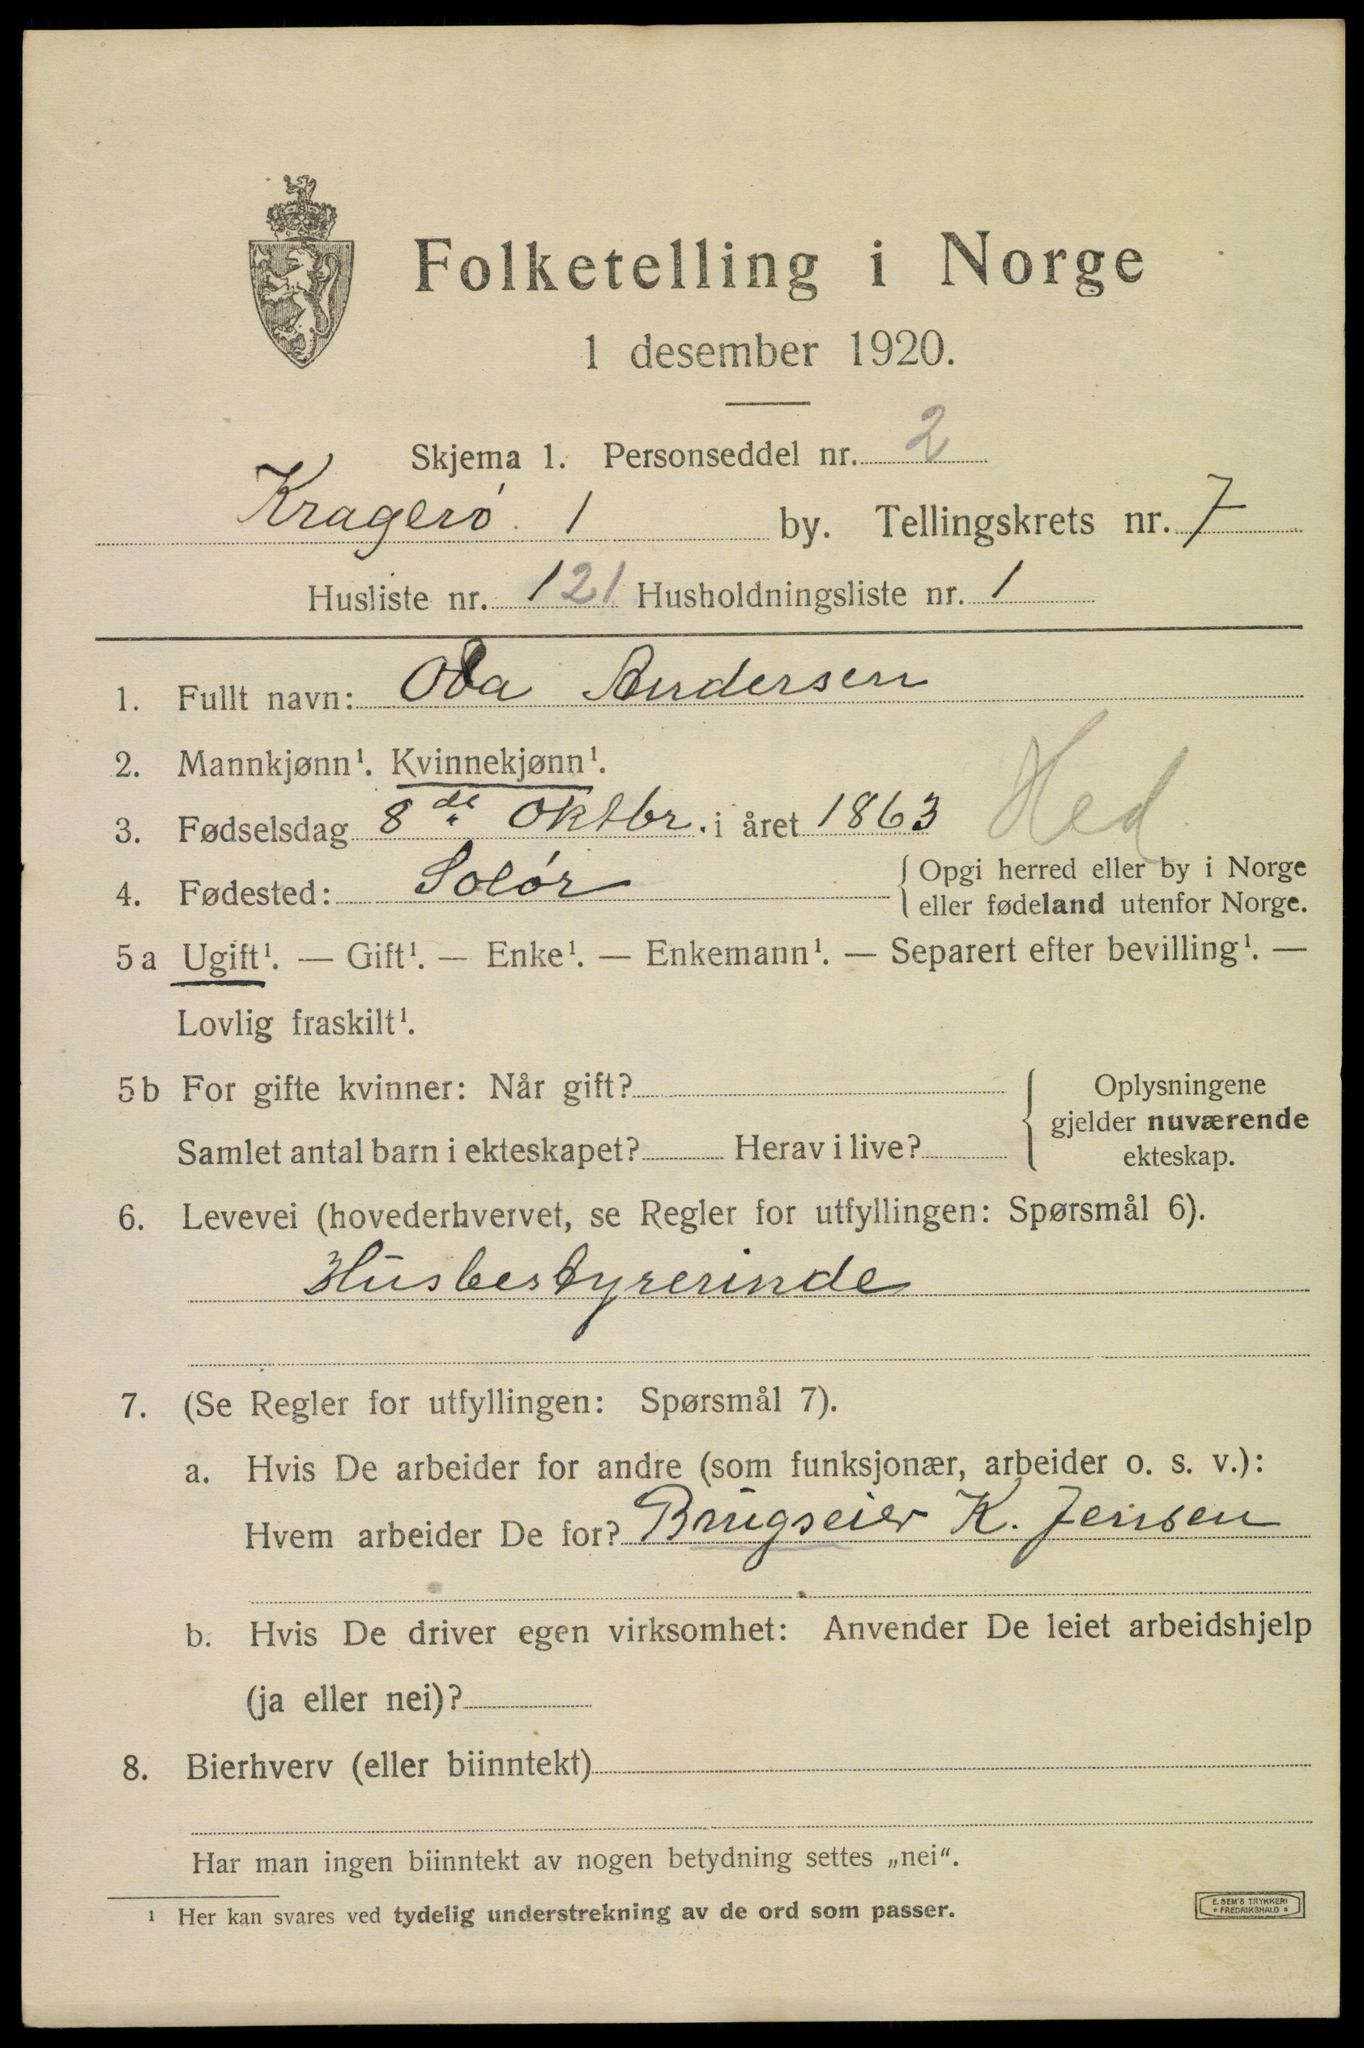 Folketelling i Norge
1 desember 1920.
Skjema 1. Personseddel nr. 2
Kragerö. 1 by. Tellingskrets nr. 7
Husliste nr. 121 Husholdningsliste nr. 1
1. Fullt navn: Oda Andersen
2. Mannkjønn¹. Kvinnekjønn¹.
3. Fødselsdag 8de Oktbr. i året 1863 Hed
4. Fødested: Solör { Opgi herred eller by i Norge
eller fødeland utenfor Norge.
5a Ugift¹. — Gift¹. — Enke¹. — Enkemann¹. — Separert efter bevilling¹. —
Lovlig fraskilt¹.
5b For gifte kvinner: Når gift? { Oplysningene
gjelder nuværende
Samlet antal barn i ekteskapet? Herav i live? ekteskap.
6. Levevei (hovederhvervet, se Regler for utfyllingen: Spørsmål 6).
Husbestyrerinde
7. (Se Regler for utfyllingen: Spørsmål 7).
a. Hvis De arbeider for andre (som funksjonær, arbeider o. s. v.):
Hvem arbeider De for? Brugseier K. Jensen
b. Hvis De driver egen virksomhet: Anvender De leiet arbeidshjelp
(ja eller nei)?
8. Bierhverv (eller biinntekt)
Har man ingen biinntekt av nogen betydning settes „nei".
¹ Her kan svares ved tydelig understrekning av de ord som passer.
E. SEM'S TRYKKERI
* FREDRIKSHALD *